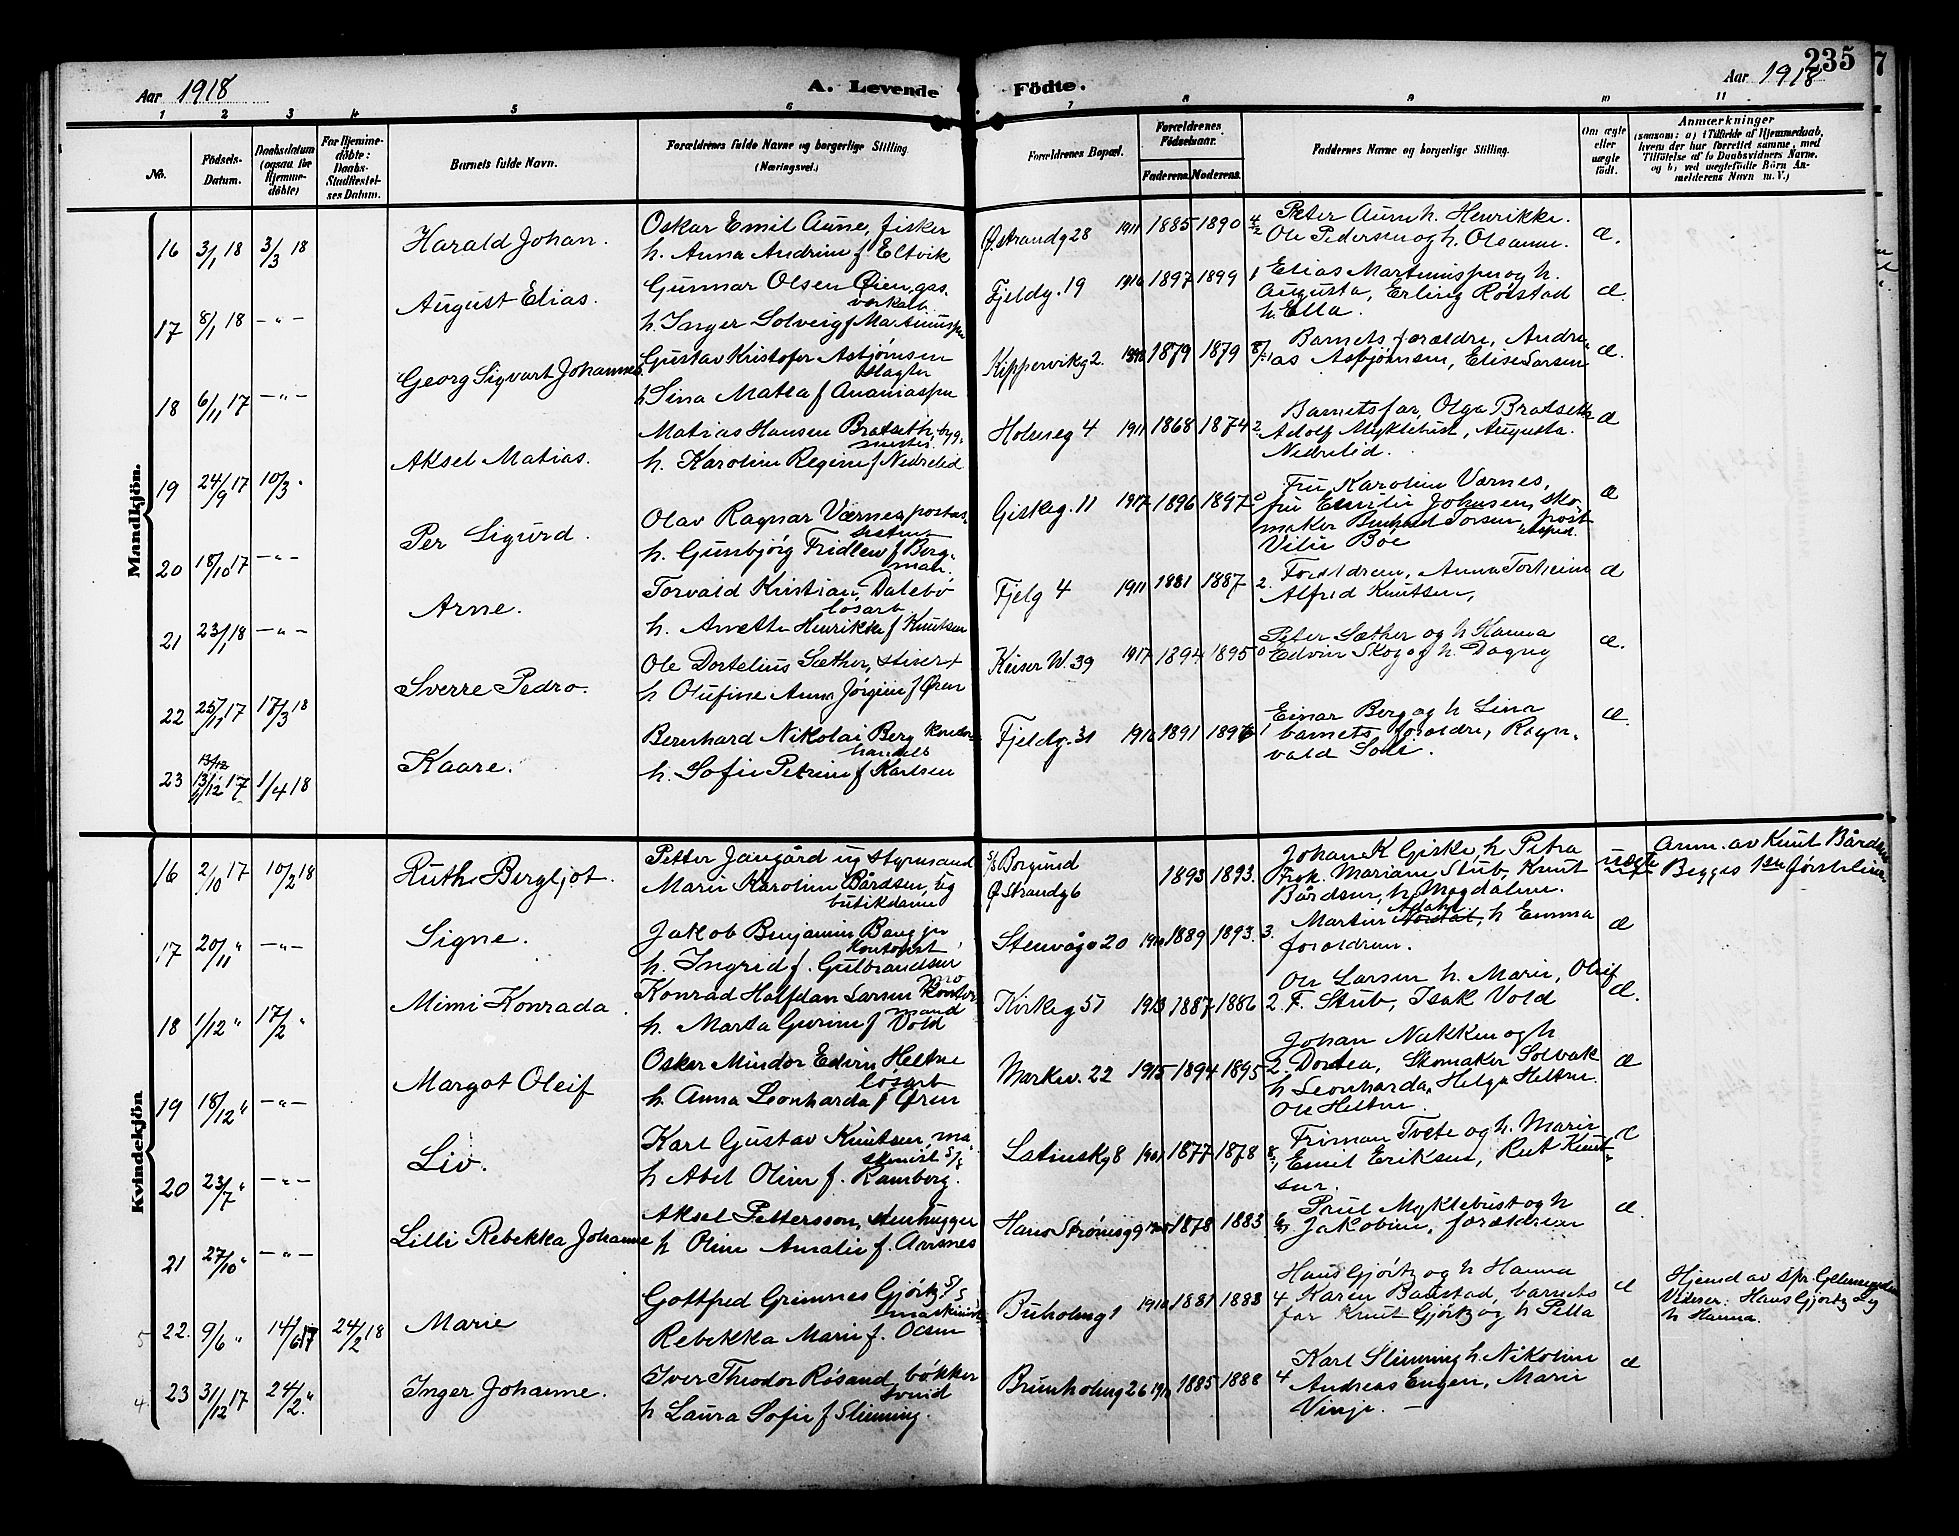 235
7
Aar 1918
A. Levende Födte.
Aar 1918
1 2 3 4 5 6 7 8 9 10 11
No.
Födsels-
Datum.
Daabsdatum
(ogsaa for
Hjemme-
döbte)
For Hjemme-
döbte:
Daabs-
Stadfæstel-
ses Datum.
Barnets fulde Navn.
Forældrenes fulde Navne og borgerlige Stilling
(Næringsvei.)
Forældrenes Bopæl.
Forældrenes
Födselsaar.
Faderens. Moderens.
Faddernes Navne og borgerlige Stilling.
Om ægte
eller
uægte
födt.
Anmærkninger
(saasom: a) i Tilfælde af Hjemmedaab,
hvem der har forrettet samme, med
Tilföielse af to Daabsvidners Navne.
og b) ved uægtefödte Börn An-
melderens Navn m. V.)
Mandkjön.
16 3/1 18 3/3 18 Harald Johan.
Oskar Emil Aune, fisker
h. Anna Andrine f Eltvik
Ø. strandg 28 1911 1885 1890
Peter Aune h. Henrikke.
Ole Pedersen og h. Oleanne. æ.
17 8/1 18 -"- August Elias.
Gunnar Olsen Øien, gas-
verkarb.
h. Inger Solveig f Martinussen
Fjeldg. 19 1916 1897 1899 1
Elias Martinussen og h.
Augusta, Erling Röistad
h. Ella. æ.
18 6/11 17 -"- Georg Sigvart Johannes
Gustav Kristofer Asbjørnsen
slagter
h Lina Matea f Ananiassen
Kippervikg 2. 1879 1879
Barnets forældre, Andre-
as Asbjørnsen, Elise Larsen æ.
19 24/9 17 10/3 " Aksel Matias.
Matias Hansen Brataeth, byg-
mester.
h. Karoline Regine f Nedrelid
Holmeg 4 1911 1868 1874 2.
Barnets far, Olga Brataeth
Adolf Myklebust, Augusta
Nedrelid. æ
20 18/10 17 -"- Per Sigurd.
Olav Ragnar Værnes, postas-
sistent
h. Gunbjørg Fridlev f Berg-
man.
Giskeg. 11 1917 1896 1897 0
Fru Karoline Værnes,
fru Emilie Johnsen, sko-
maker Bernhard Torsen, post
eksped.
Vilie Boe æ
21 23/1 18 -"- Arne.
Torvald Kristian Dalebø
løsarb
h. Anette Henrikke f Knutsen
Fjelg 4 1911 1881 1887 2.
Forældrene, Anna Torheim
Alfred Knutsen, æ
22 25/11 17 17/3 18 Sverre Pedro.
Ole Dortelius Sæther,
h Olufine Anna Jørgine f Øren
Keiser W. 39 1917 1894 1895 0
Peter Sæther og h Hanna
Edvin Skog og h. Dagny æ.
23 13/12 17 1/4 18 Kaare.
Bernhard Nikolai Berg
handels
h. Sofie Petrine f Karlsen
Fjeldg. 31 1916 1891 1896 1
Einar Berg og h Lina
barnets forældre, Ragn-
vald Sole. æ.
Kvindekjön
16 2/10 17 10/2 18 Ruth Bergljot.
Petter Jangård ug styrmand
Marie Karoline Bårdsen, ug
butikdame
s/s Borgund
Ø strandg 6 1893 1893.
Johan K Giske, h Petra
frøk. Mariane Stub, Knut
Bårdsen, h Magdalene. uægte
Anm. av Knut Bårdsen
Begges 1ste førstelinie
17 20/11 " -"- Signe.
Jakob Benjamin Bang jr
kontorist
h. Ingrid f. Gulbrandsen
Stenvåg 20 1889 1893. 3.
Adahl
Martin h Emma
forældrene. æ
18 1/12 " 17/2 " Mimi Konrada
Konrad Halfdan Larsen
mand
h. Marta Gurine f Vold
Kirkeg 57 1913 1887 1886 2
Ole Larsen h. Marie, Oleif
F. Stub, Isak Vold æ.
19 18/12 " -"- Margot Oleif
Oskar Mindor Edvin Heltne
løsarb
h. Anna Leonharda f Øren
Markv. 22 1915 1894 1895 2.
Johan Nakken og h
Dortea, Skomaker Solbak
h Leonharda, Helga Heltne.
Ole Heltne. æ
20 23/7 " -"- Liv.
Karl Gustav Knutsen, ma-
skinist s/s
h Abel Oline f. Ramberg.
Latinskg 8 1901 1877 1878
Friman Tvete og h. Marie
Emil Eriksen, Rut Knut-
sen. æ
21 27/10 " -"- Lilli Rebekka Johanne
Aksel Pettersson, stenhugger
h Oline Amalie f. Aarsnes
Hans Strømsg 9 1878 1883
Poul Myklebust og h
Jakobine, forældrene æ.
5 22. 9/6 " 14/6 17 24/2 18 Marie
Gottfred Grimnes Gjörtz s/s
maskinist
Rebekka Marie f. Olsen
Buholmg 1 1910 1881 1888 4
Hans Gjörtz og h Hanna
Karen Baustad, barnets
far Knut Gjörtz og h Pella æ
Hjemd av spr.
Vidner: Hans Gjørtz og
h Hanna.
4 23 31/12 17 24/2 " Inger Johanne.
Iver Theodor Røsand, bökker
svend
h Laura Sofie f Slinning.
Brunholmg 26 1885 1888 4
Karl Slinning h. Nikoline
Andreas Engen, Marie
Vinje. - æ